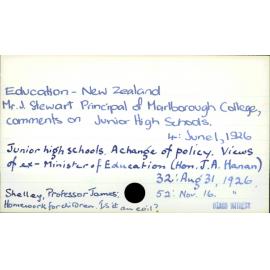 Education - New Zealand
Mr. J. Stewart Principal of Marlborough College,
comments on Junior High Schools.
4: June 1, 1926
Junior high schools. A change of policy. Views
of ex-Minister of Education (Hon. J. A. Hanan)
32: Aug 31, 1926.
Shelley, Professor James; 52: Nov. 16. "
Homework for children. Is it an evil?